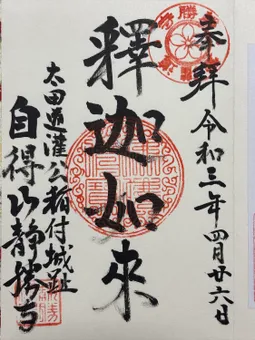 奉拝 令和三年四月廿六日
釋迦如來
太田道灌公稲付城趾
自得山静勝寺